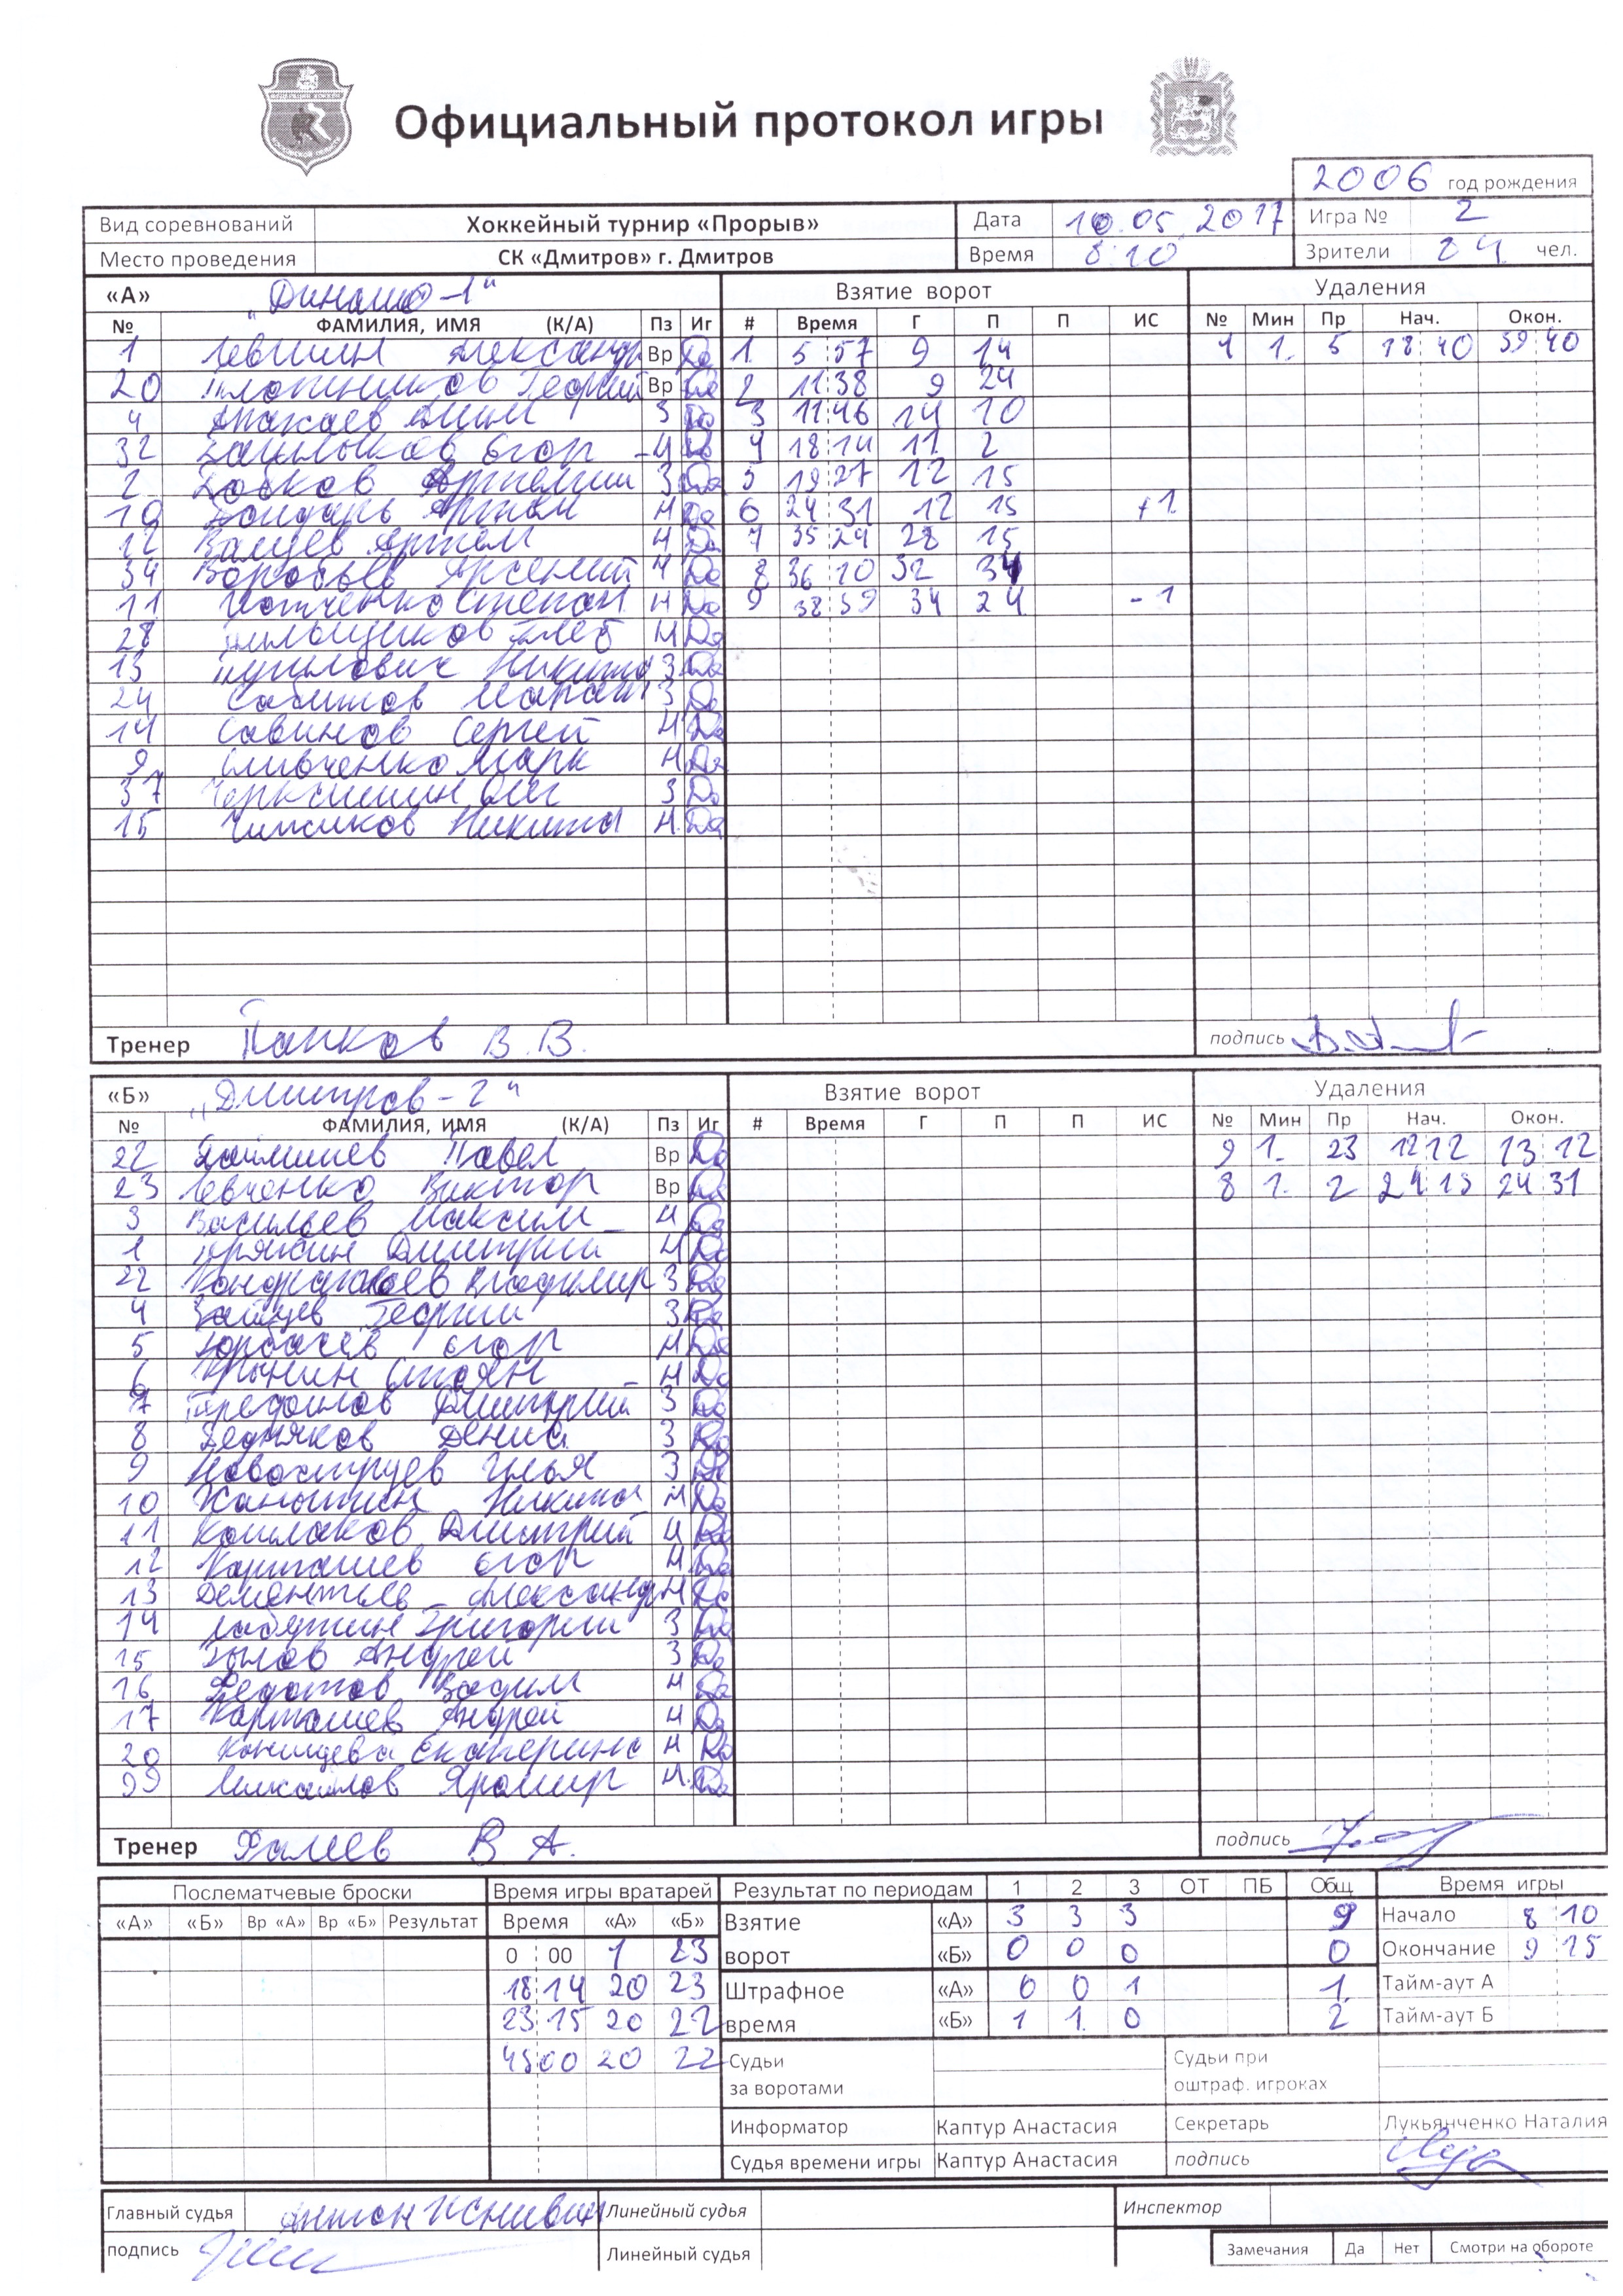 Официальный протокол игры
2006 год рождения
Вид соревнований Хоккейный турнир «Прорыв» Дата 10.05.2017 Игра № 2
Место проведения СК «Дмитров» г. Дмитров Время 8:10 Зрители 24 чел.
«А» "Динамо-1" Взятие ворот Удаления
№ ФАМИЛИЯ, ИМЯ (К/А) Пз Иг # Время Г П П ИС № Мин Пр Нач. Окон.
1 Левшин Александр Вр Да 1 5 57 9 14 1. 5 40 39 40
20 Плотников Георгий Вр Да 2 11 38 9 24
4 З Да 3 11 46 14 10
32 Егор Да 4 18 14 11 2
2 З Да 5 19 27 12 15
10 Бондарь Артём Н Да 6 24 31 12 15 +1
12 Зайцев Артём Н Да 7 35 29 28 15
34 Воробьёв Арсений Н Да 8 36 10 32 34
11 Степан Н Да 9 38 59 34 24 -1
28 Глеб Н Да
13 Никита З Да
24 Сабитов Марат З Да
14 Савинов Сергей Н Да
9 Марк Н Да
37 З Да
15 Чижиков Никита Н Да
Тренер Панков В.В. подпись
«Б» "Дмитров-2" Взятие ворот Удаления
№ ФАМИЛИЯ, ИМЯ (К/А) Пз Иг # Время Г П П ИС № Мин Пр Нач. Окон.
22 Павел Вр Да 9 1. 23 12 12 13 12
23 Левченко Виктор Вр Да 8 1. 2 24 15 24 31
3 Васильев Максим Н Да
1 Дмитрий Н Да
22 Владимир З Да
4 Зайцев Георгий З Да
5 Горбачев Егор Н Да
6 Н Да
7 Дмитрий З Да
8 Бедняков Денис З Да
9 Новоструев Илья З Да
10 Никита Н Да
11 Кошлаков Дмитрий Н Да
12 Карташев Егор Н Да
13 Дементьев Александр Н Да
14 Григорий З Да
15 Андрей З Да
16 Федотов Вадим Н Да
17 Карташев Андрей Н Да
20 Екатерина Н Да
99 Михайлов Яромир Н Да
Тренер Фалеев В А. подпись
Послематчевые броски Время игры вратарей Результат по периодам 1 2 3 ОТ ПБ Общ Время игры
«А» «Б» Вр «А» Вр «Б» Результат Время «А» «Б» Взятие «А» 3 3 3 9 Начало 8 10
0 00 1 23 ворот «Б» 0 0 0 0 Окончание 9 15
18 14 20 23 Штрафное «А» 0 0 1 1 Тайм-аут А
23 15 20 22 время «Б» 1 1 0 2 Тайм-аут Б
45 00 20 22 Судьи Судьи при
за воротами оштраф. игроках
Информатор Каптур Анастасия Секретарь Лукьянченко Наталия
Судья времени игры Каптур Анастасия подпись
Главный судья Антон Линейный судья Инспектор
подпись Линейный судья Замечания Да Нет Смотри на обороте